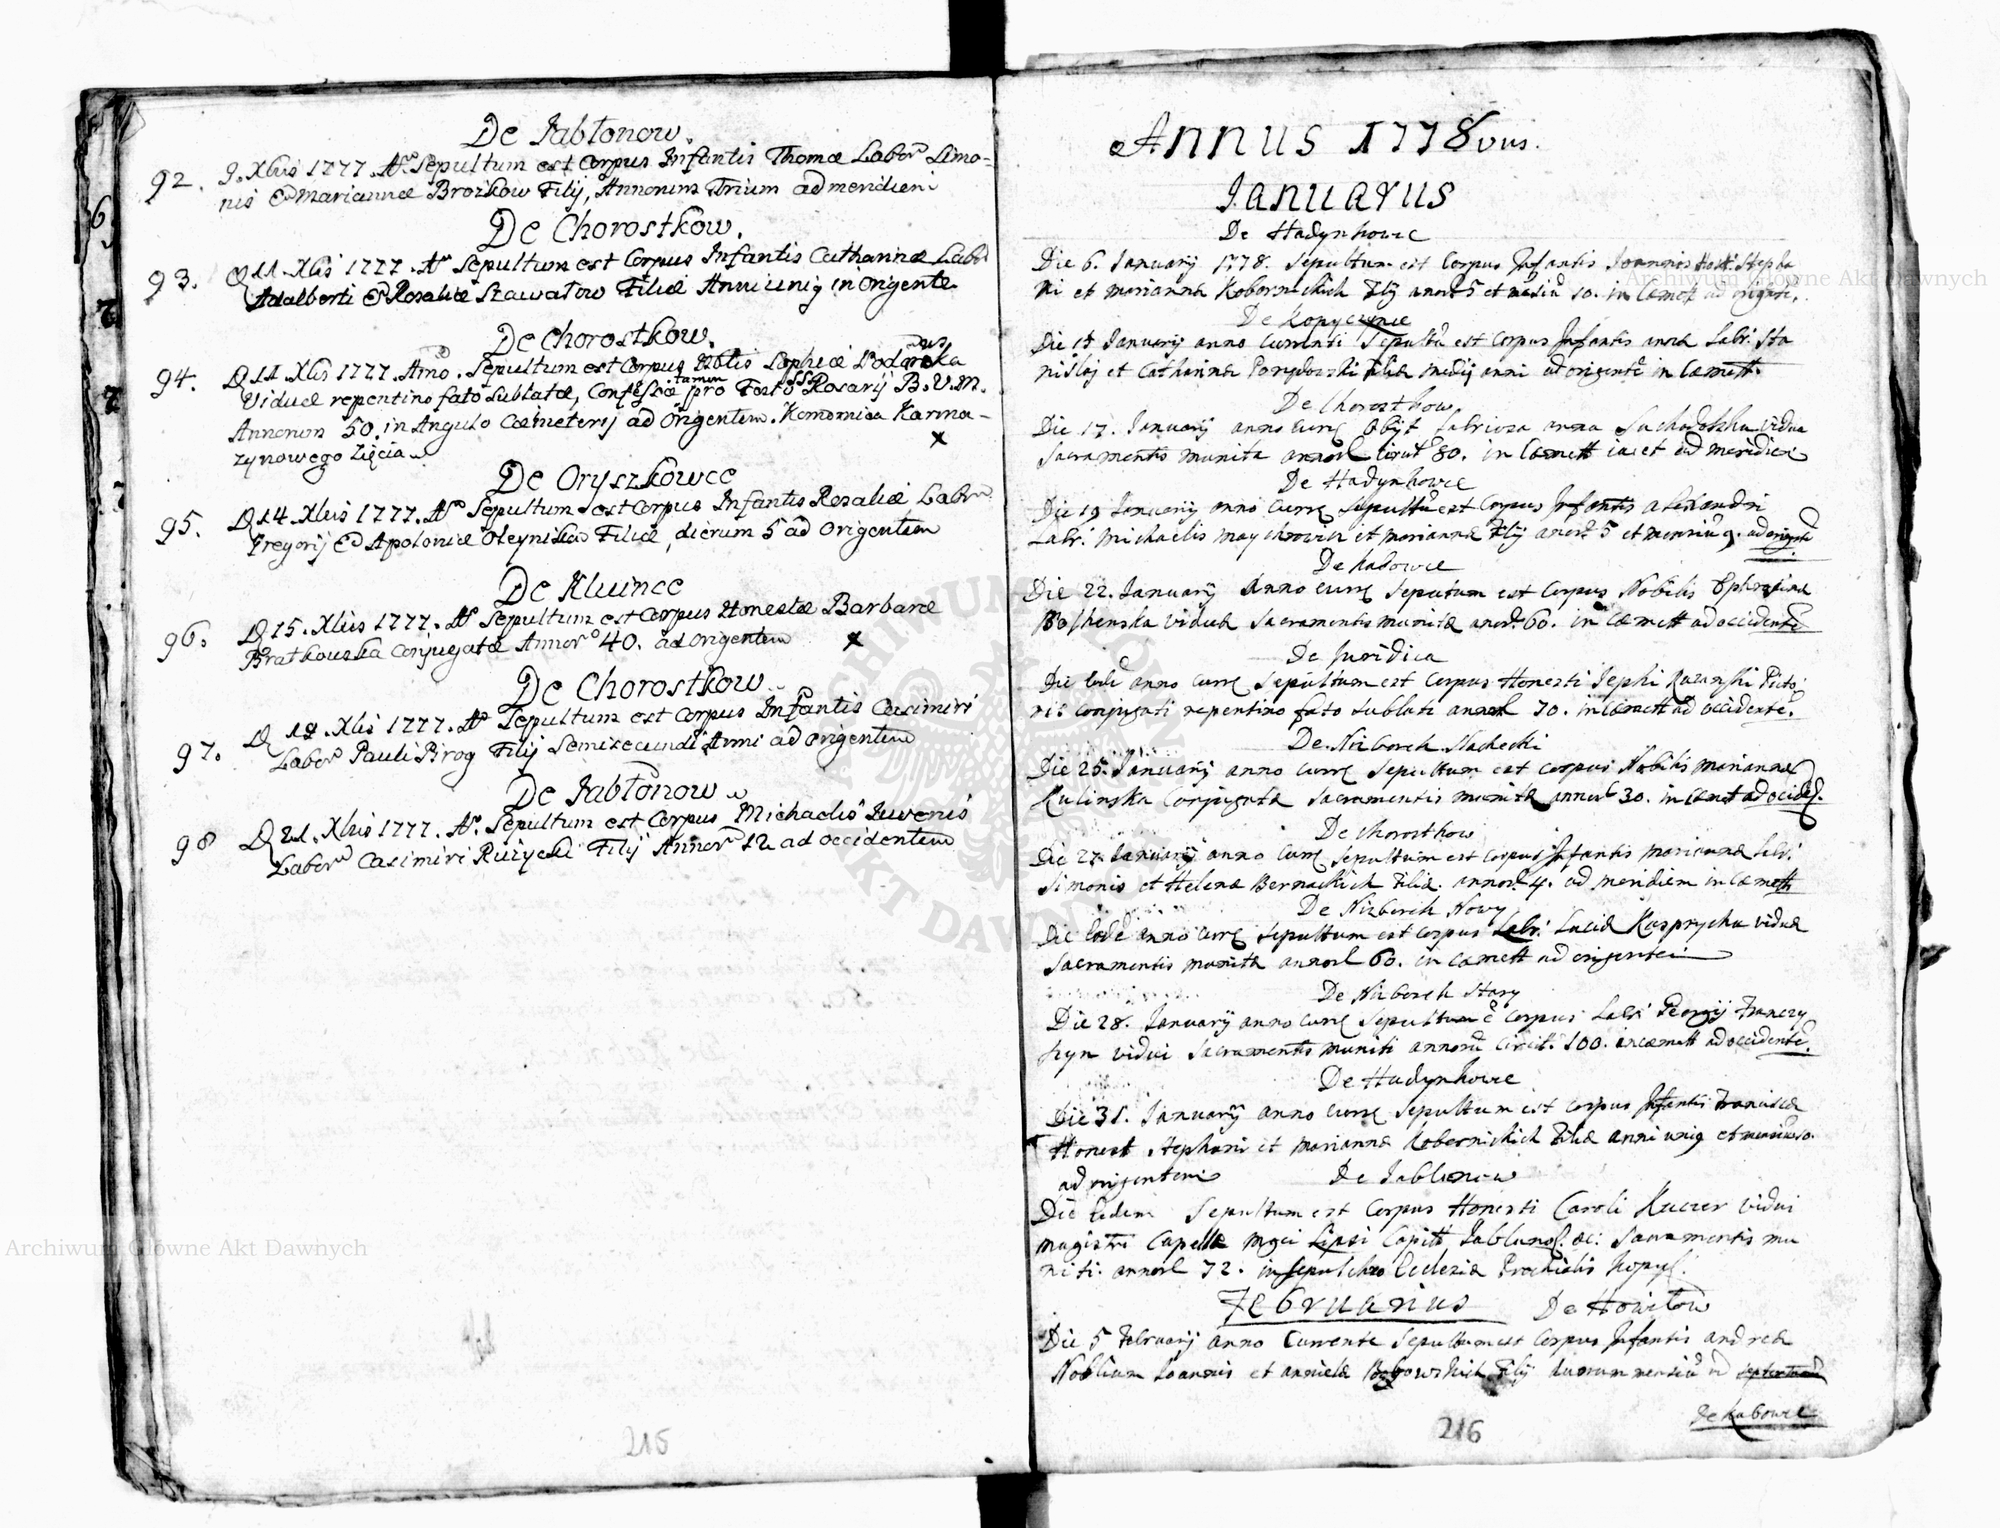 De Jabłonow.
92. 9. Xbris 1777. Ao. Sepultum est Corpus Infantis Thomæ Labor. Simo-
nis & Mariannæ Brozkow Filij, Annorum Trium ad meridiem
De Chorostkow.
93. D 11. Xbis 1777. Ao Sepultum est Corpus Infantis Catharinæ Labor
Adalberti & Rosaliæ Szawałow Filiæ Anni unig in Origente
De Chorostkow.
94. D 11. Xbis 1777. Anno. Sepultum est Corpus Nblis Sophiæ
Viduæ repentino fato Sublatæ, Confessæ tamen pro Festo SSS Rosarij B. V. M.
Annorum 50. in Angulo Cæmeterij ad Origentem. Komornica Karma-
zynowego Zięcia
De Oryszkowce
95. D 14. Xbris 1777. Ao Sepultum est Corpus Infantis Rosaliæ Labor
Gregorij & Apoloniæ Oleynikow Filiæ, dierum 5 ad Origentem
De Kluince
96. D 15. Xbris 1777. Ao Sepultum est Corpus Honestæ Barbaræ
Bratkouska Conjugatæ Annor 40. ad Origentem
De Chorostkow
97. D 18. Xbis 1777. Ao Sepultum est Corpus Infantis Casimiri
Labor Pauli Pirog Filij Semisecundi Anni ad Origentem
De Jabłonow
98 D 21. Xbris 1777. Ao. Sepultum est Corpus Michaelis Iuvenis
Labor Casimiri Rużycki Filij Annor 12 ad occidentem
215
Annus 1778vus.
Januarius
De Hadynkowce
Die 6. Januarij 1778. Sepultum est Corpus Infantis Joannis Host. Stepha
ni et Mariannæ Kobernickich Filij anor 5 et mesiu 10. in Cæmett ad origent.
De Kopyczynce
Die 15 Januarij anno Currenti Sepultu est Corpus Infantis Annæ Labr. Sta
nislaj et Catharinæ Filiæ medij anni ad origente in Cæmett.
De Chorostkow
Die 17. Januarij anno Curre Obijt Labriosa Anna vidua
Sacramentis munita annor Circit 80. in Cæmett iacet ad meridie
De Hadynkowce
Die 19 Januarij anno Curre Sepultu est Corpus Infantis Alexandri
Labr. Michaelis et Mariannæ Filij anor 5 et mensiu 9. ad origente
De Kabowce
Die 22. Januarij Anno Curre Sepultum est Corpus Nobilis Ephrosinæ
viduæ Sacramentis munitæ anor. 60. in Cæmett ad occidente
De Juridica
Die Eode anno Curre Sepultum est Corpus Honesti Picto
ris Conjugati repentino fato Sublati annor 70. in Cæmett ad occidente.
De Nizborek Slachecki
Die 25. Januarij anno Curre Sepultum est Corpus Nobilis Mariannæ
Kulinska Conjugatæ Sacramentis munitæ annor 30. in Cæmet ad occide.
De Chorostkow
Die 27. Januarij anno Curre Sepultum est Corpus Infantis Mariannæ Labr.
Simonis et Helenæ Bernackich Filiæ. annor 4. ad meridiem in Cæmett
De Nizborek Nowy
Die Eode anno Curre Sepultum est Corpus Labr. Luciæ Kasprychu viduæ
Sacramentis munitæ annor 60. in Cæmett ad origentem
De Nizborek Stary
Die 28. Januarij anno Curre Sepultum e Corpus Labr Georgij Franczy
szyn vidui Sacramentis muniti annoru Circit. 100. in cæmett ad occidente.
De Hadynkowce
Die 31. Januarij anno Curre Sepultum est Corpus Infantis Franciscæ
Honest Stephani et Mariannæ Kobernickich Filiæ anni unig et mensiu 10.
ad origentem De Jablonow
Die Eadem Sepultum est Corpus Honesti Caroli Kuczer vidui
Magistri Capellæ Mgci Lipsi Capitt Jablunos. &c: Sacramentis mu
niti. annor 72. in sepulchro Ecclesiæ Prochialis Kopyc.
Februarius De Howilow
Die 5 Februarij anno Currente Sepultum est Corpus Infantis Andreæ
Nobilium Joannis et Annielæ Filij duorum mensiu
de Kabowce
216
Archiwum Główne Akt Dawnych
Archiwum Główne Akt Dawnych
ARCHIWUM GŁÓWNE AKT DAWNYCH